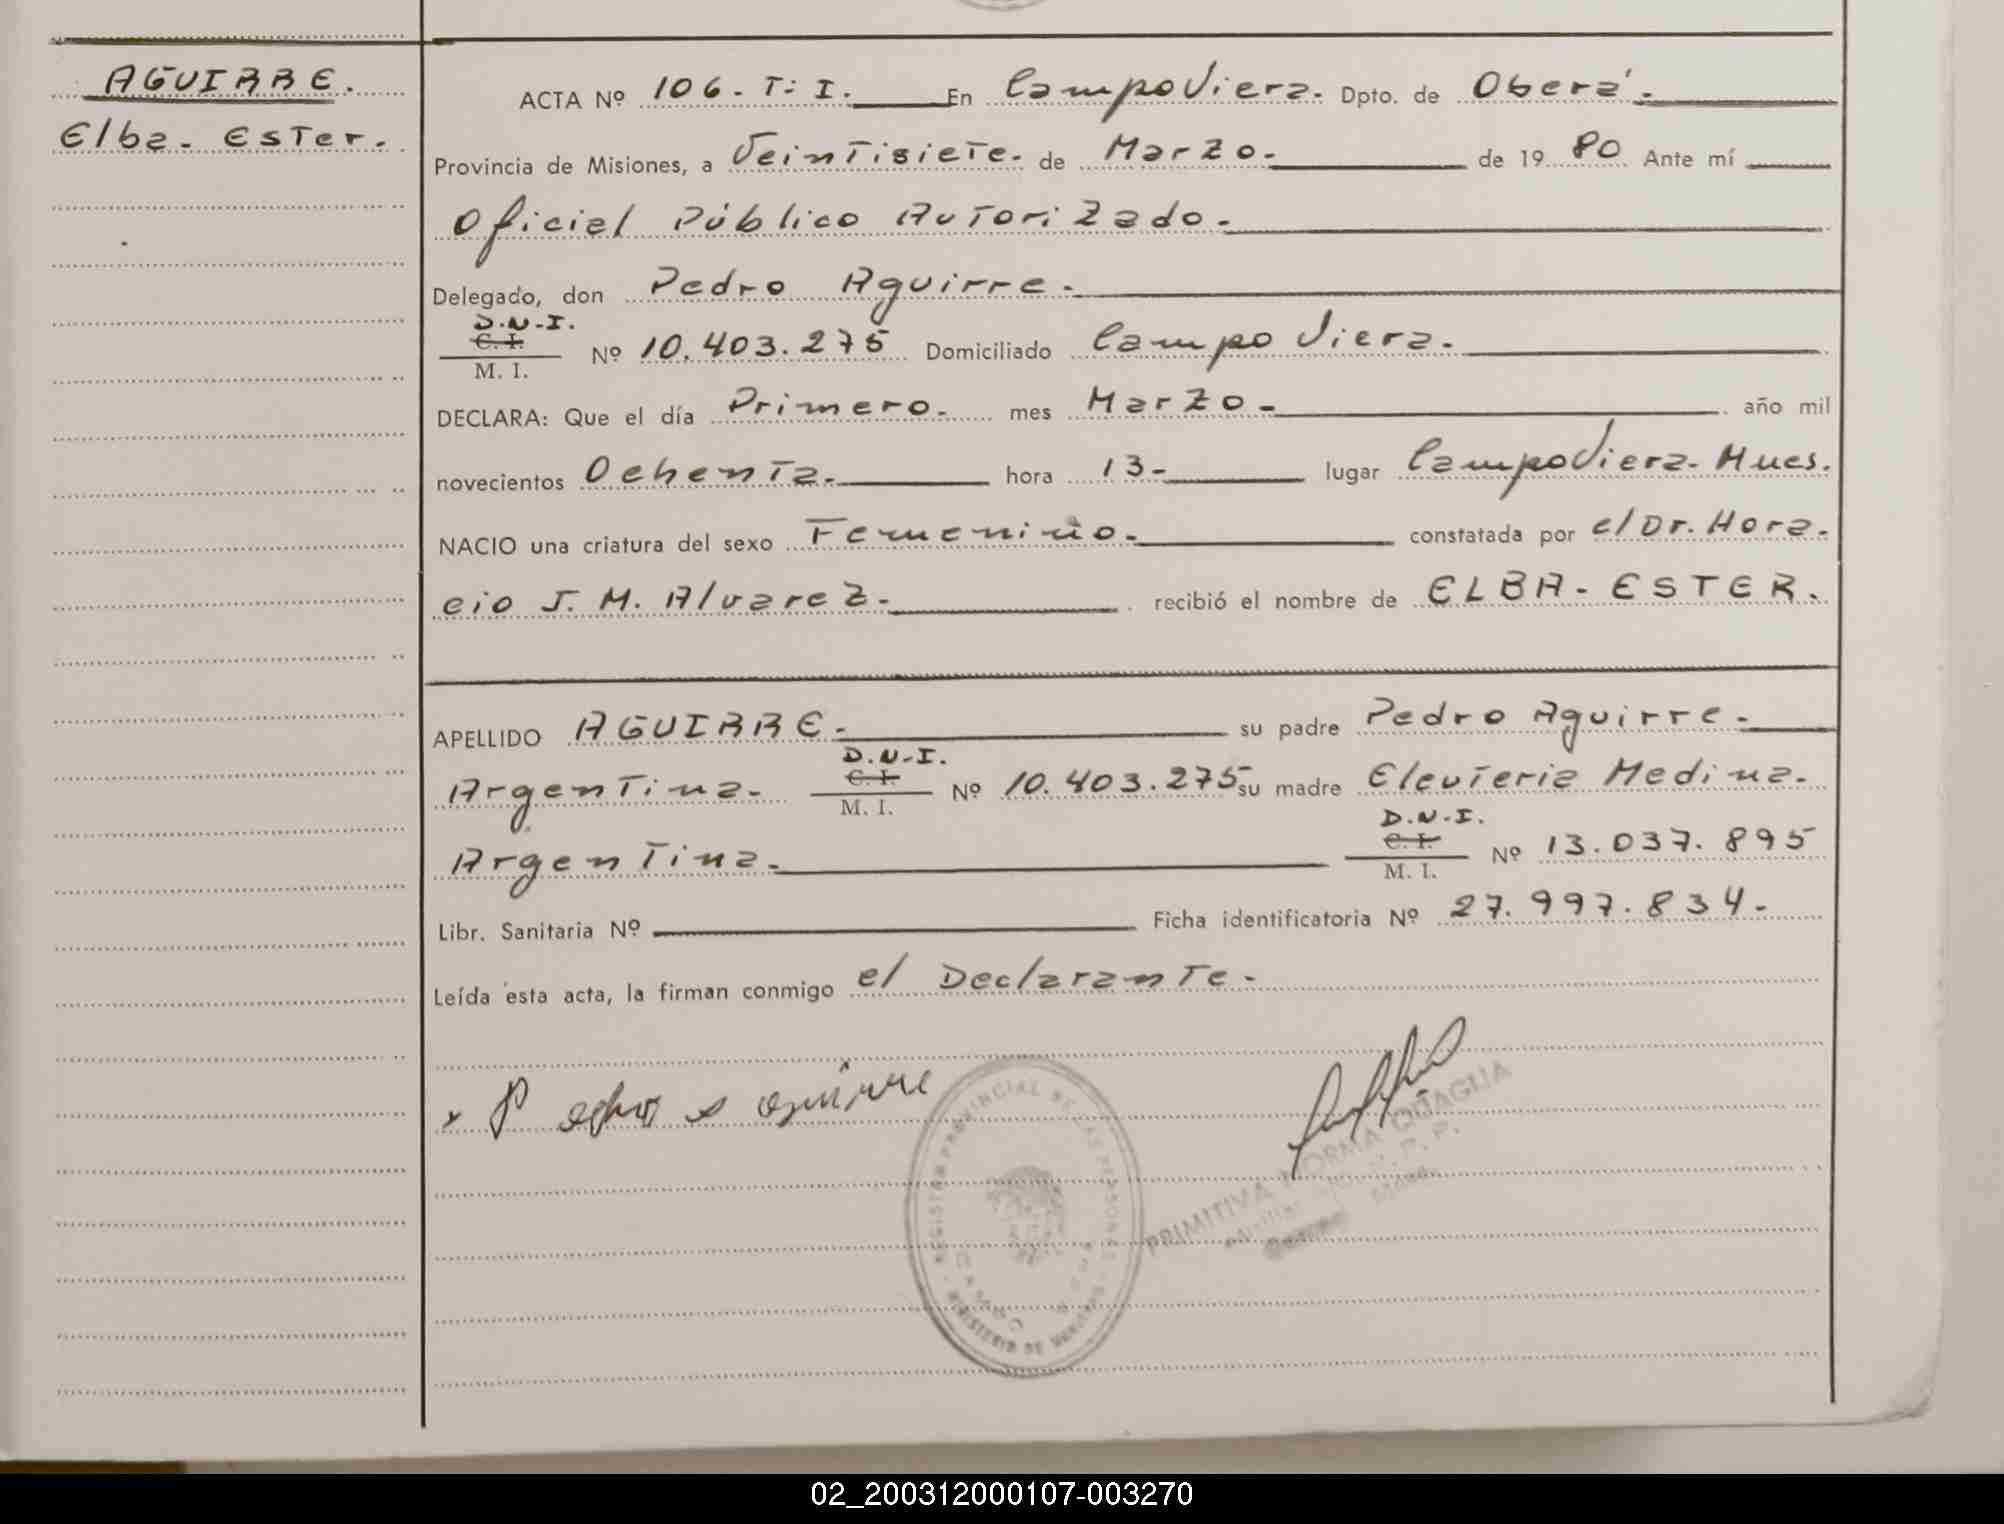 AGUIRRE.
Elba - Ester.
ACTA Nº 106 - T: I. En Campo Viera. Dpto. de Oberá.
Provincia de Misiones, a Veintisiete. de Marzo. de 19 80 Ante mí
Oficial Público Autorizado.
Delegado, don Pedro Aguirre.
D.N.I.
C. I.
M. I.
Nº 10.403.275 Domiciliado Campo Viera.
DECLARA: Que el día Primero. mes Marzo. año mil
novecientos Ochenta. hora 13- lugar Campo Viera - Mnes.
NACIO una criatura del sexo Femenino. constatada por el Dr. Hora.
cio J. M. Alvarez. recibió el nombre de ELBA - ESTER.
APELLIDO AGUIRRE. su padre Pedro Aguirre.
Argentina. D.N.I. C. I. M. I. Nº 10.403.275 su madre Eleuteria Medina.
Argentina. D.N.I. C. I. M. I. Nº 13.037.895
Libr. Sanitaria Nº Ficha identificatoria Nº 27.997.834.
Leída esta acta, la firman conmigo el Declarante.
REGISTRO PROVINCIAL DE LAS PERSONAS
MINISTERIO DE
PRIMITIVA NORMA QUAGLIA
02_200312000107-003270